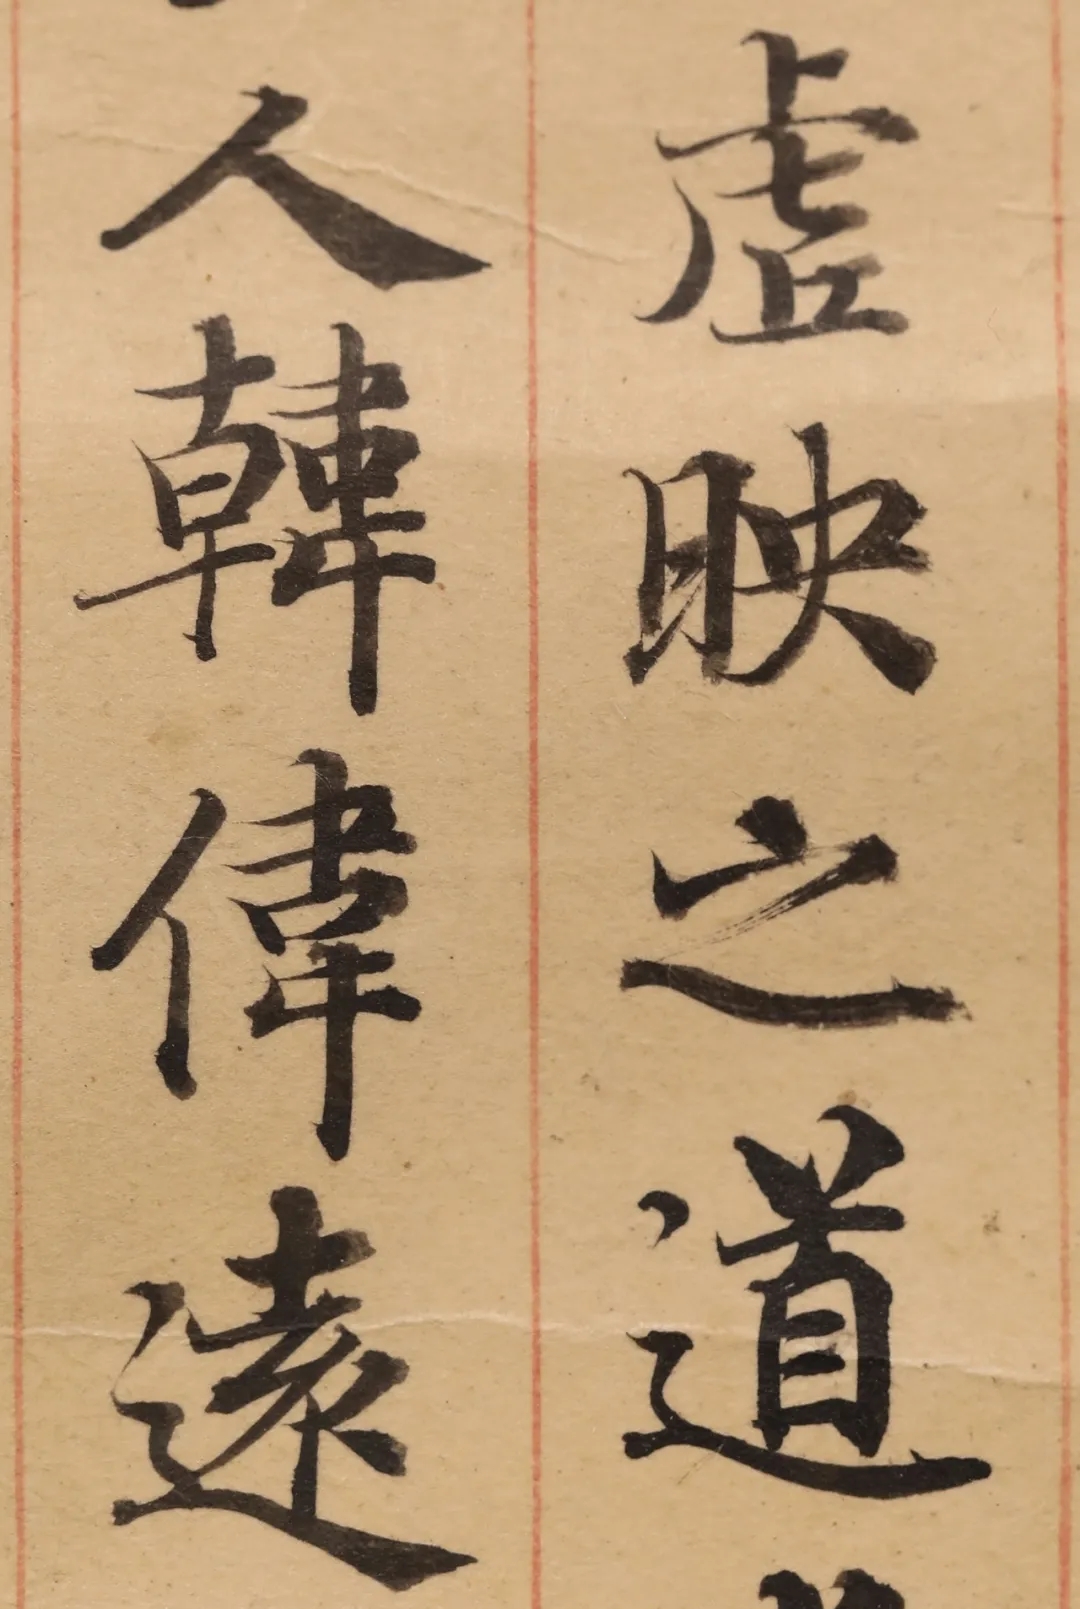 虚映之道
人韓偉遠